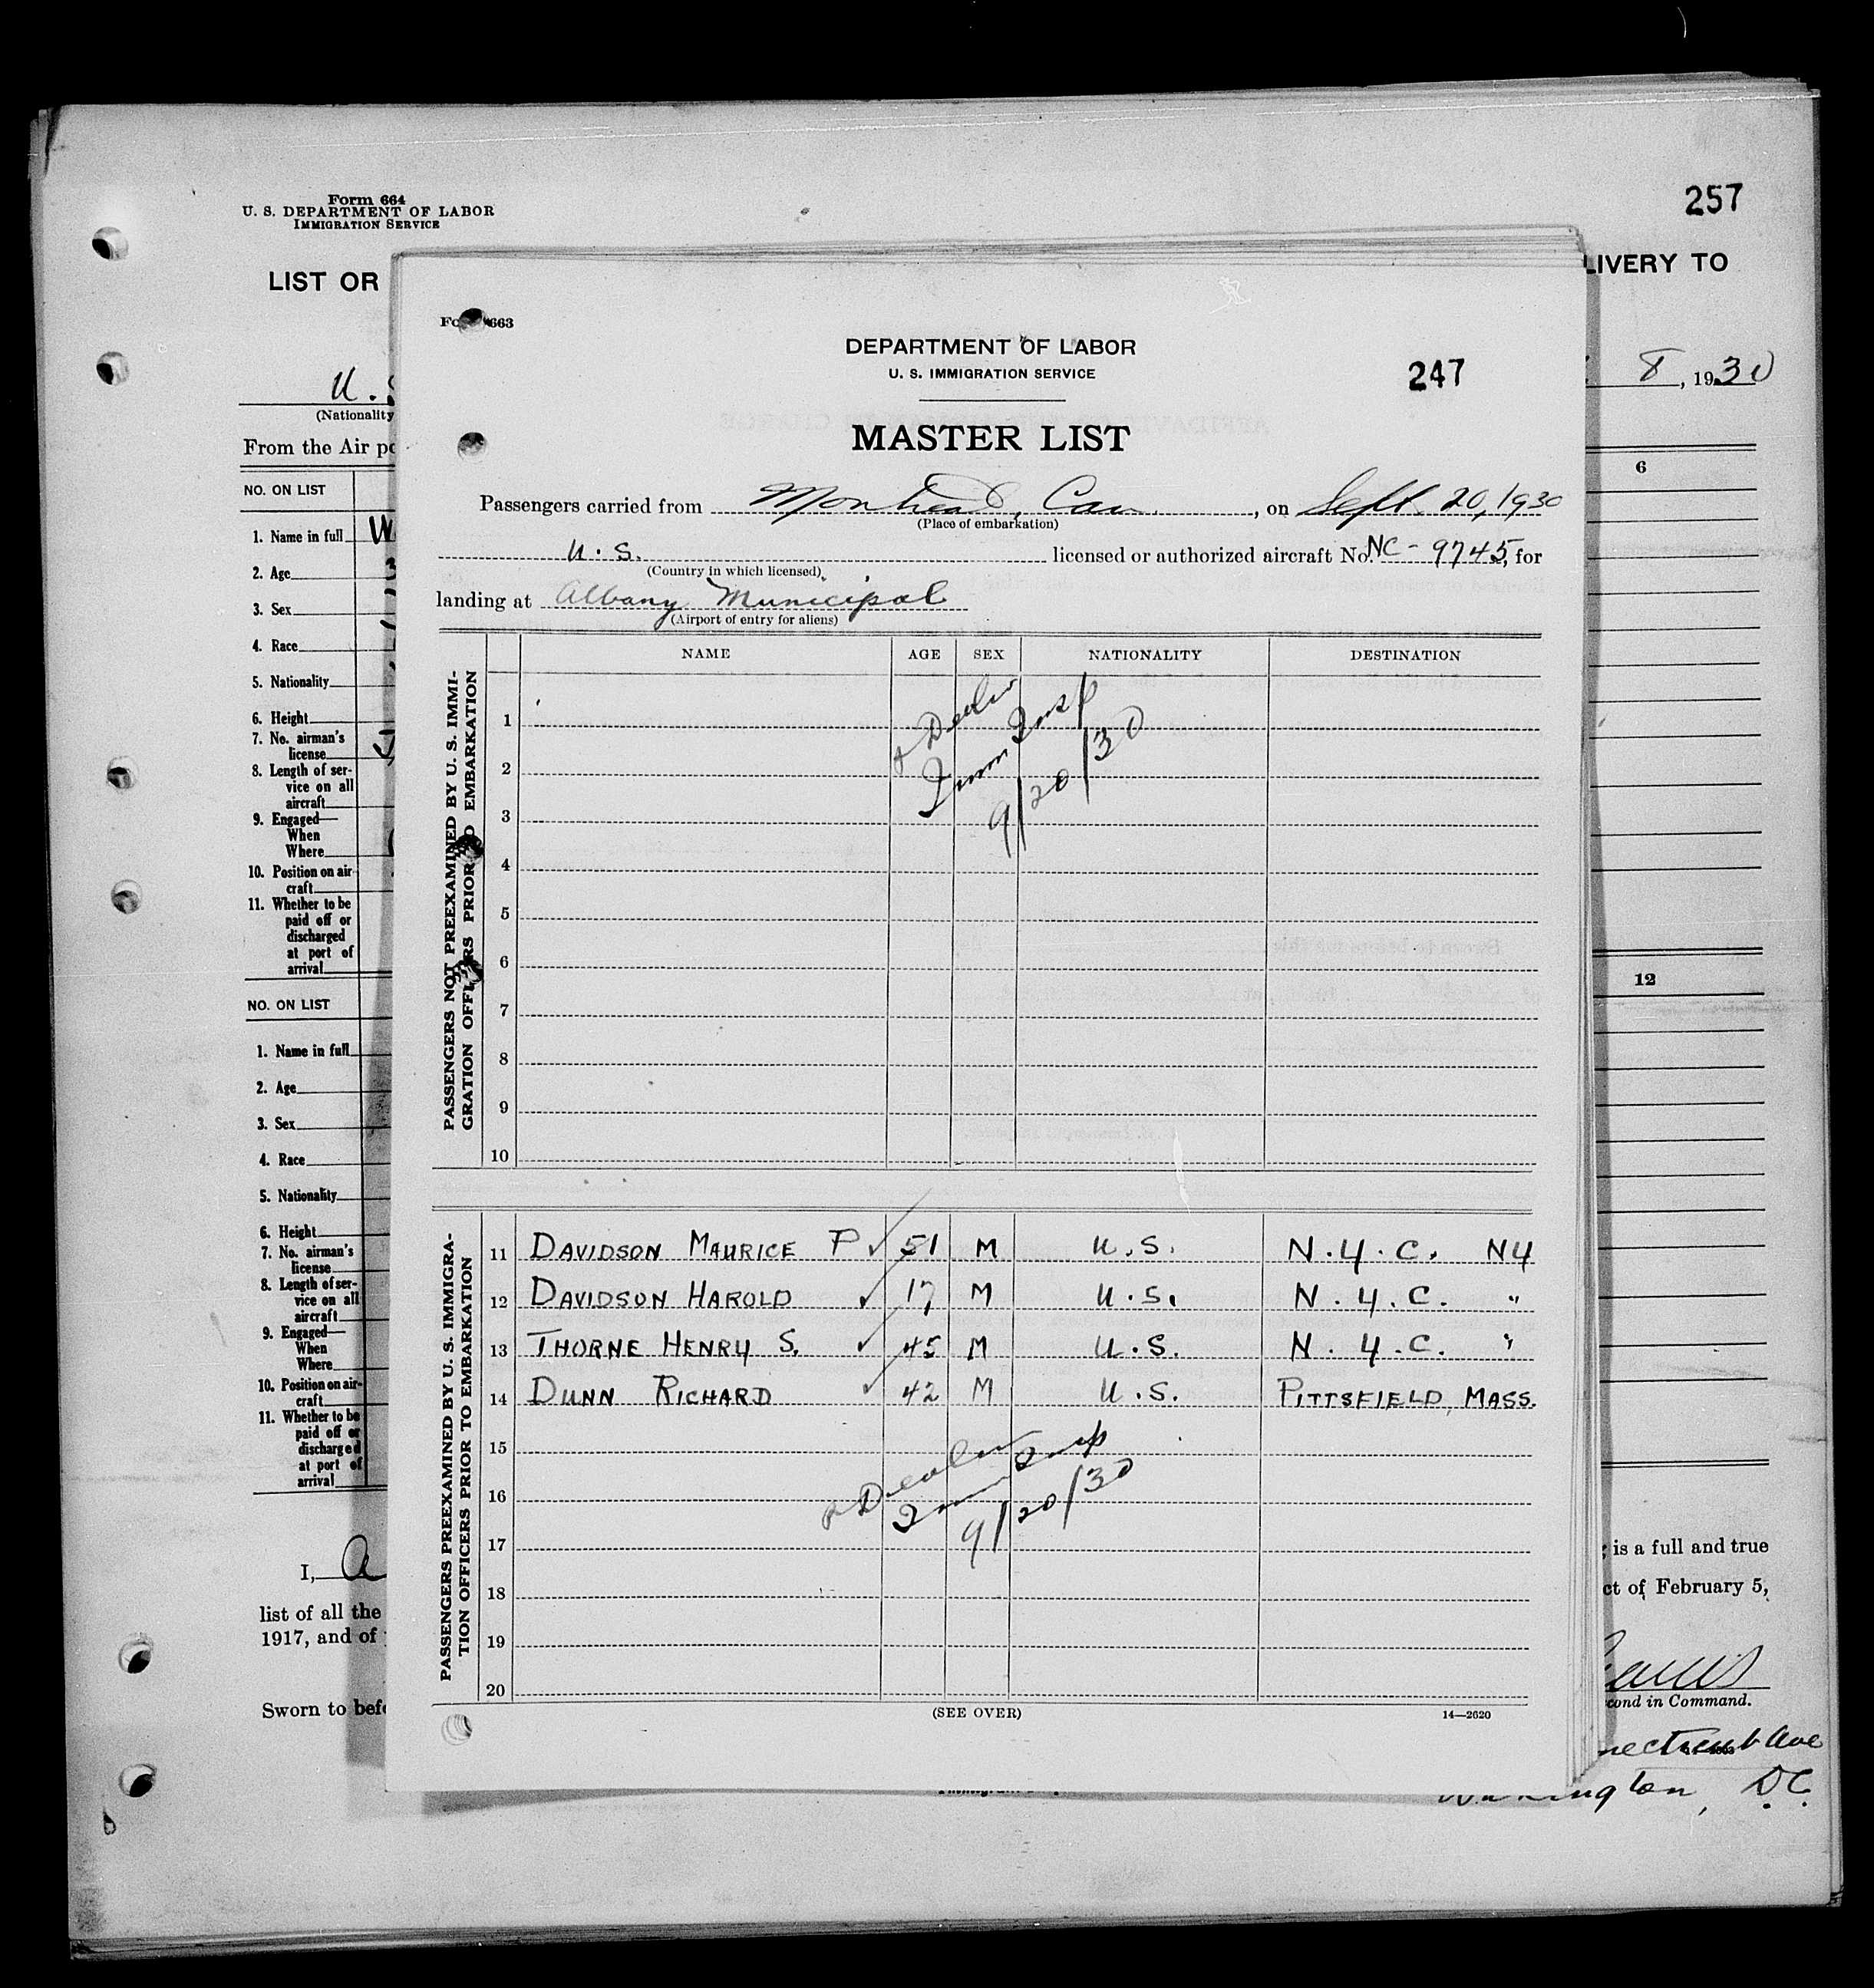 Form 664
U. S. DEPARTMENT OF LABOR
IMMIGRATION SERVICE
257
LIST OR
LIVERY TO
U. S
8, 1930
(Nationality
From the Air po
NO. ON LIST
6
1. Name in full
2. Age
3. Sex
4. Race
5. Nationality
6. Height
7. No. airman's
license
8. Length of ser-
vice on all
aircraft
9. Engaged—
When
Where
10. Position on air-
craft
11. Whether to be
paid off or
discharged
at port of
arrival
NO. ON LIST
12
1. Name in full
2. Age
3. Sex
4. Race
5. Nationality
6. Height
7. No. airman's
license
8. Length of ser-
vice on all
aircraft
9. Engaged—
When
Where
10. Position on air-
craft
11. Whether to be
paid off or
discharged
at port of
arrival
I, a
is a full and true
list of all the
ct of February 5,
1917, and of
Sworn to befo
cond in Command.
necticut Ave
Washington, D.C.
663
DEPARTMENT OF LABOR
U. S. IMMIGRATION SERVICE
247
MASTER LIST
Passengers carried from Montreal, Can., on Sept. 20, 1930
(Place of embarkation)
U. S. licensed or authorized aircraft No. NC-9745, for
(Country in which licensed)
landing at Albany Municipal
(Airport of entry for aliens)
NAME AGE SEX NATIONALITY DESTINATION
PASSENGERS NOT PREEXAMINED BY U. S. IMMI-
GRATION OFFICERS PRIOR TO EMBARKATION
1
2
3
4
5
6
7
8
9
10
Imm Insp
9/20/30
PASSENGERS PREEXAMINED BY U. S. IMMIGRA-
TION OFFICERS PRIOR TO EMBARKATION
11 DAVIDSON MAURICE P ✓ 51 M U.S. N.Y.C. NY
12 DAVIDSON HAROLD ✓ 17 M U.S. N.Y.C. "
13 THORNE HENRY S. ✓ 45 M U.S. N.Y.C. "
14 DUNN RICHARD ✓ 42 M U.S. PITTSFIELD, MASS.
15
16
17
18
19
20
Imm Insp
9/20/30
(SEE OVER)
14—2620